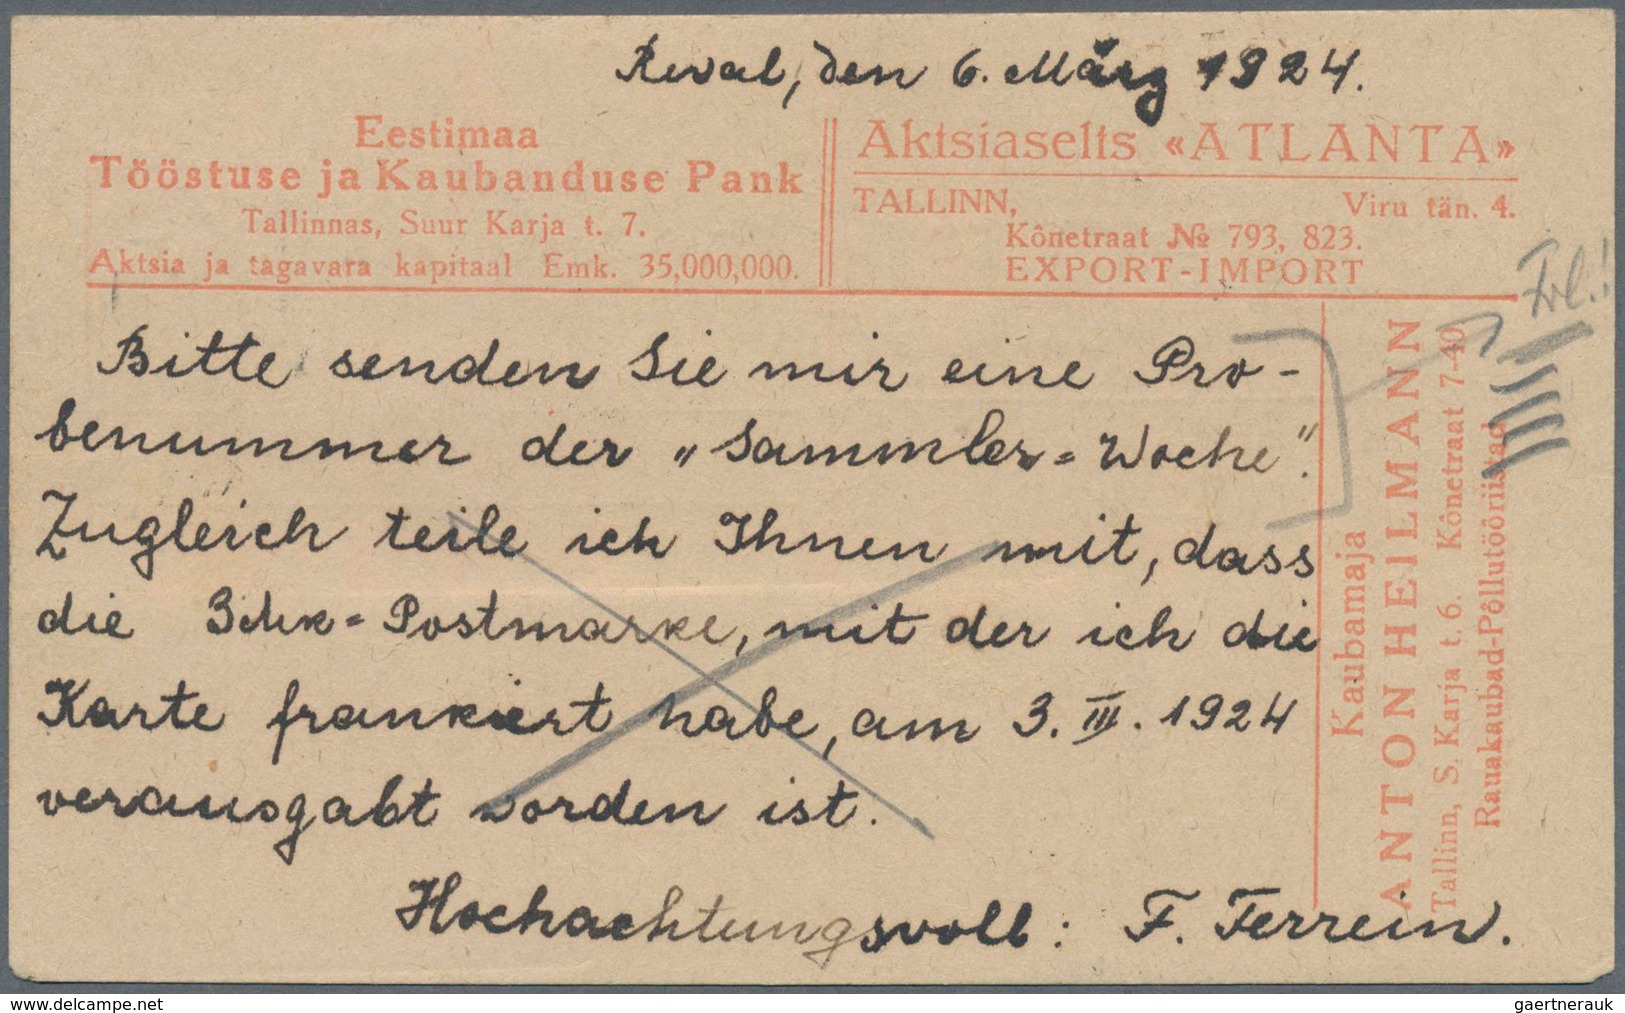 Reval, den 6. März 1924.
Eestimaa
Tööstuse ja Kaubanduse Pank
Tallinnas, Suur Karja t. 7.
Aktsia ja tagavara kapitaal Emk. 35,000,000.
Aktsiaselts «ATLANTA»
TALLINN, Viru tän. 4.
Kõnetraat № 793, 823.
EXPORT-IMPORT
Frl.!
Bitte senden Sie mir eine Pro-
benummer der „Sammler=Woche".
Zugleich teile ich Ihnen mit, dass
die Postmarke, mit der ich die
Karte frankiert habe, am 3. III. 1924
verausgabt worden ist.
Hochachtungsvoll: F. Ferrein.
Kaubamaja
ANTON HEILMANN
Tallinn, S. Karja t. 6. Kõnetraat 7-40
Rauakaubad-Põllutööriistad
www.delcampe.net
gaertnerauk